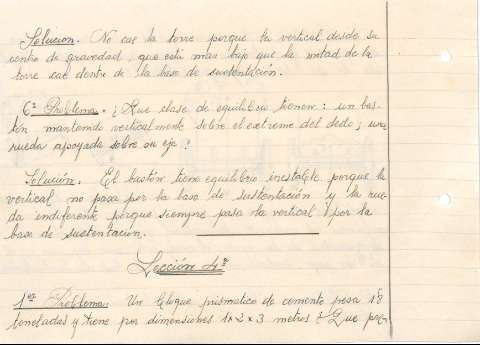 Solucion. No cae la torre porque la vertical desde su
centro de gravedad, que está mas bajo que la mitad de la
torre cae dentro de la base de sustentación.
6º Problema. ¿Que clase de equilibrio tienen: un bas-
tón mantenido verticalmente sobre el extremo del dedo; una
rueda apoyada sobre su eje?
Solución. El bastón tiene equilibrio inestable porque la
vertical no pasa por la base de sustentación y la rue-
da indiferente porque siempre pasa la vertical por la
base de sustentación.
Lección 4ª
1er Problema. Un bloque prismatico de cemento pesa 18
toneladas y tiene por dimensiones 1 x 2 x 3 metros ¿Que pre-